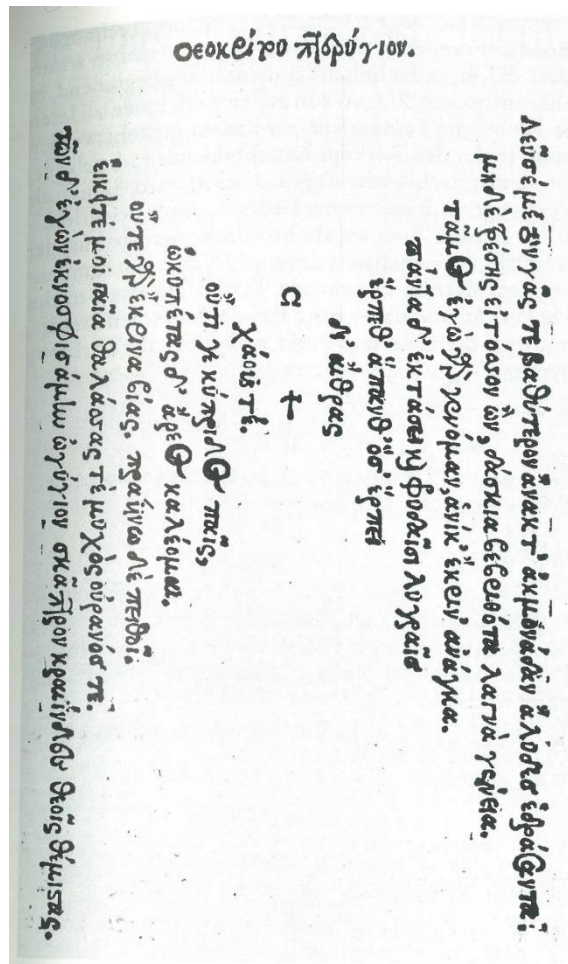 Θεοκρίτου πτερύγιον.
λεῦσέ με τὸν γᾶς τε βαθύτερον ἄνακτ' ἀκμονίδαν ἄλυδισ ἑδράσαντα:
μηδὲ τρέσῃς εἰ τόσον ὢν, δάσκια βεβριθότα λαχνᾶ γένεια.
τᾶμος ἐγὼ γὰρ γενόμαν, ἀνίκ' ἔκρινε ἀνάγκα.
πάντα δ' ἐκτάσει καὶ φραδαῖσι λυγραῖσ
ἑρπεθ' ἅπανθ' ὅσ' ἕρπει
δι' αἴθρας
c +
χάους τέ.
οὔτι γε κύπριδος παῖς,
ὠκυπέτας δ' ἄρεος καλέομαι.
οὔτι γὰρ ἔκρινα βίας. πραΰνω δὲ πειθοῖ.
εἶκέ τέ μοι γαῖα θαλάσας τε μυχὸς οὐρανόσ τε.
τῶν δ' ἐγὼν ἐκνοσφισάμαν ὠγύγιον σκᾶπτρον κραῖνον δὲ θεοῖς θέμιστας.